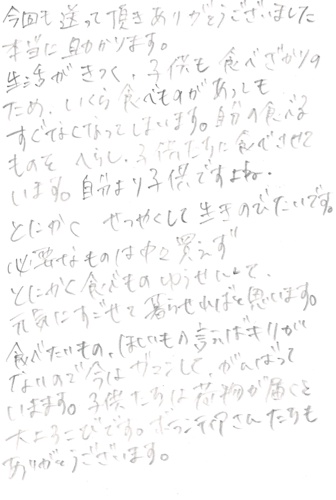 今回も送って頂きありがとうございました
本当に助かります。
生活がきつく、子供も食べざかりの
ため、いくら食べものがあっしも
すぐなくなってしまいます。自分の食べる
ものをへらし、子供たちに食べさせて
います。自分より子供ですよね。
とにかく せつやくして生きのびたいです。
必要なものは中々買えず
とにかく食べものゆうせんして、
元気にすごせて暮らせればと思います。
食べたいもの、ほしいもの言えばキリが
ないので今はガマンして、がんばって
いきます。子供たちは荷物が届くと
大よろこびです。ボランティアさんたちも
ありがとうございます。